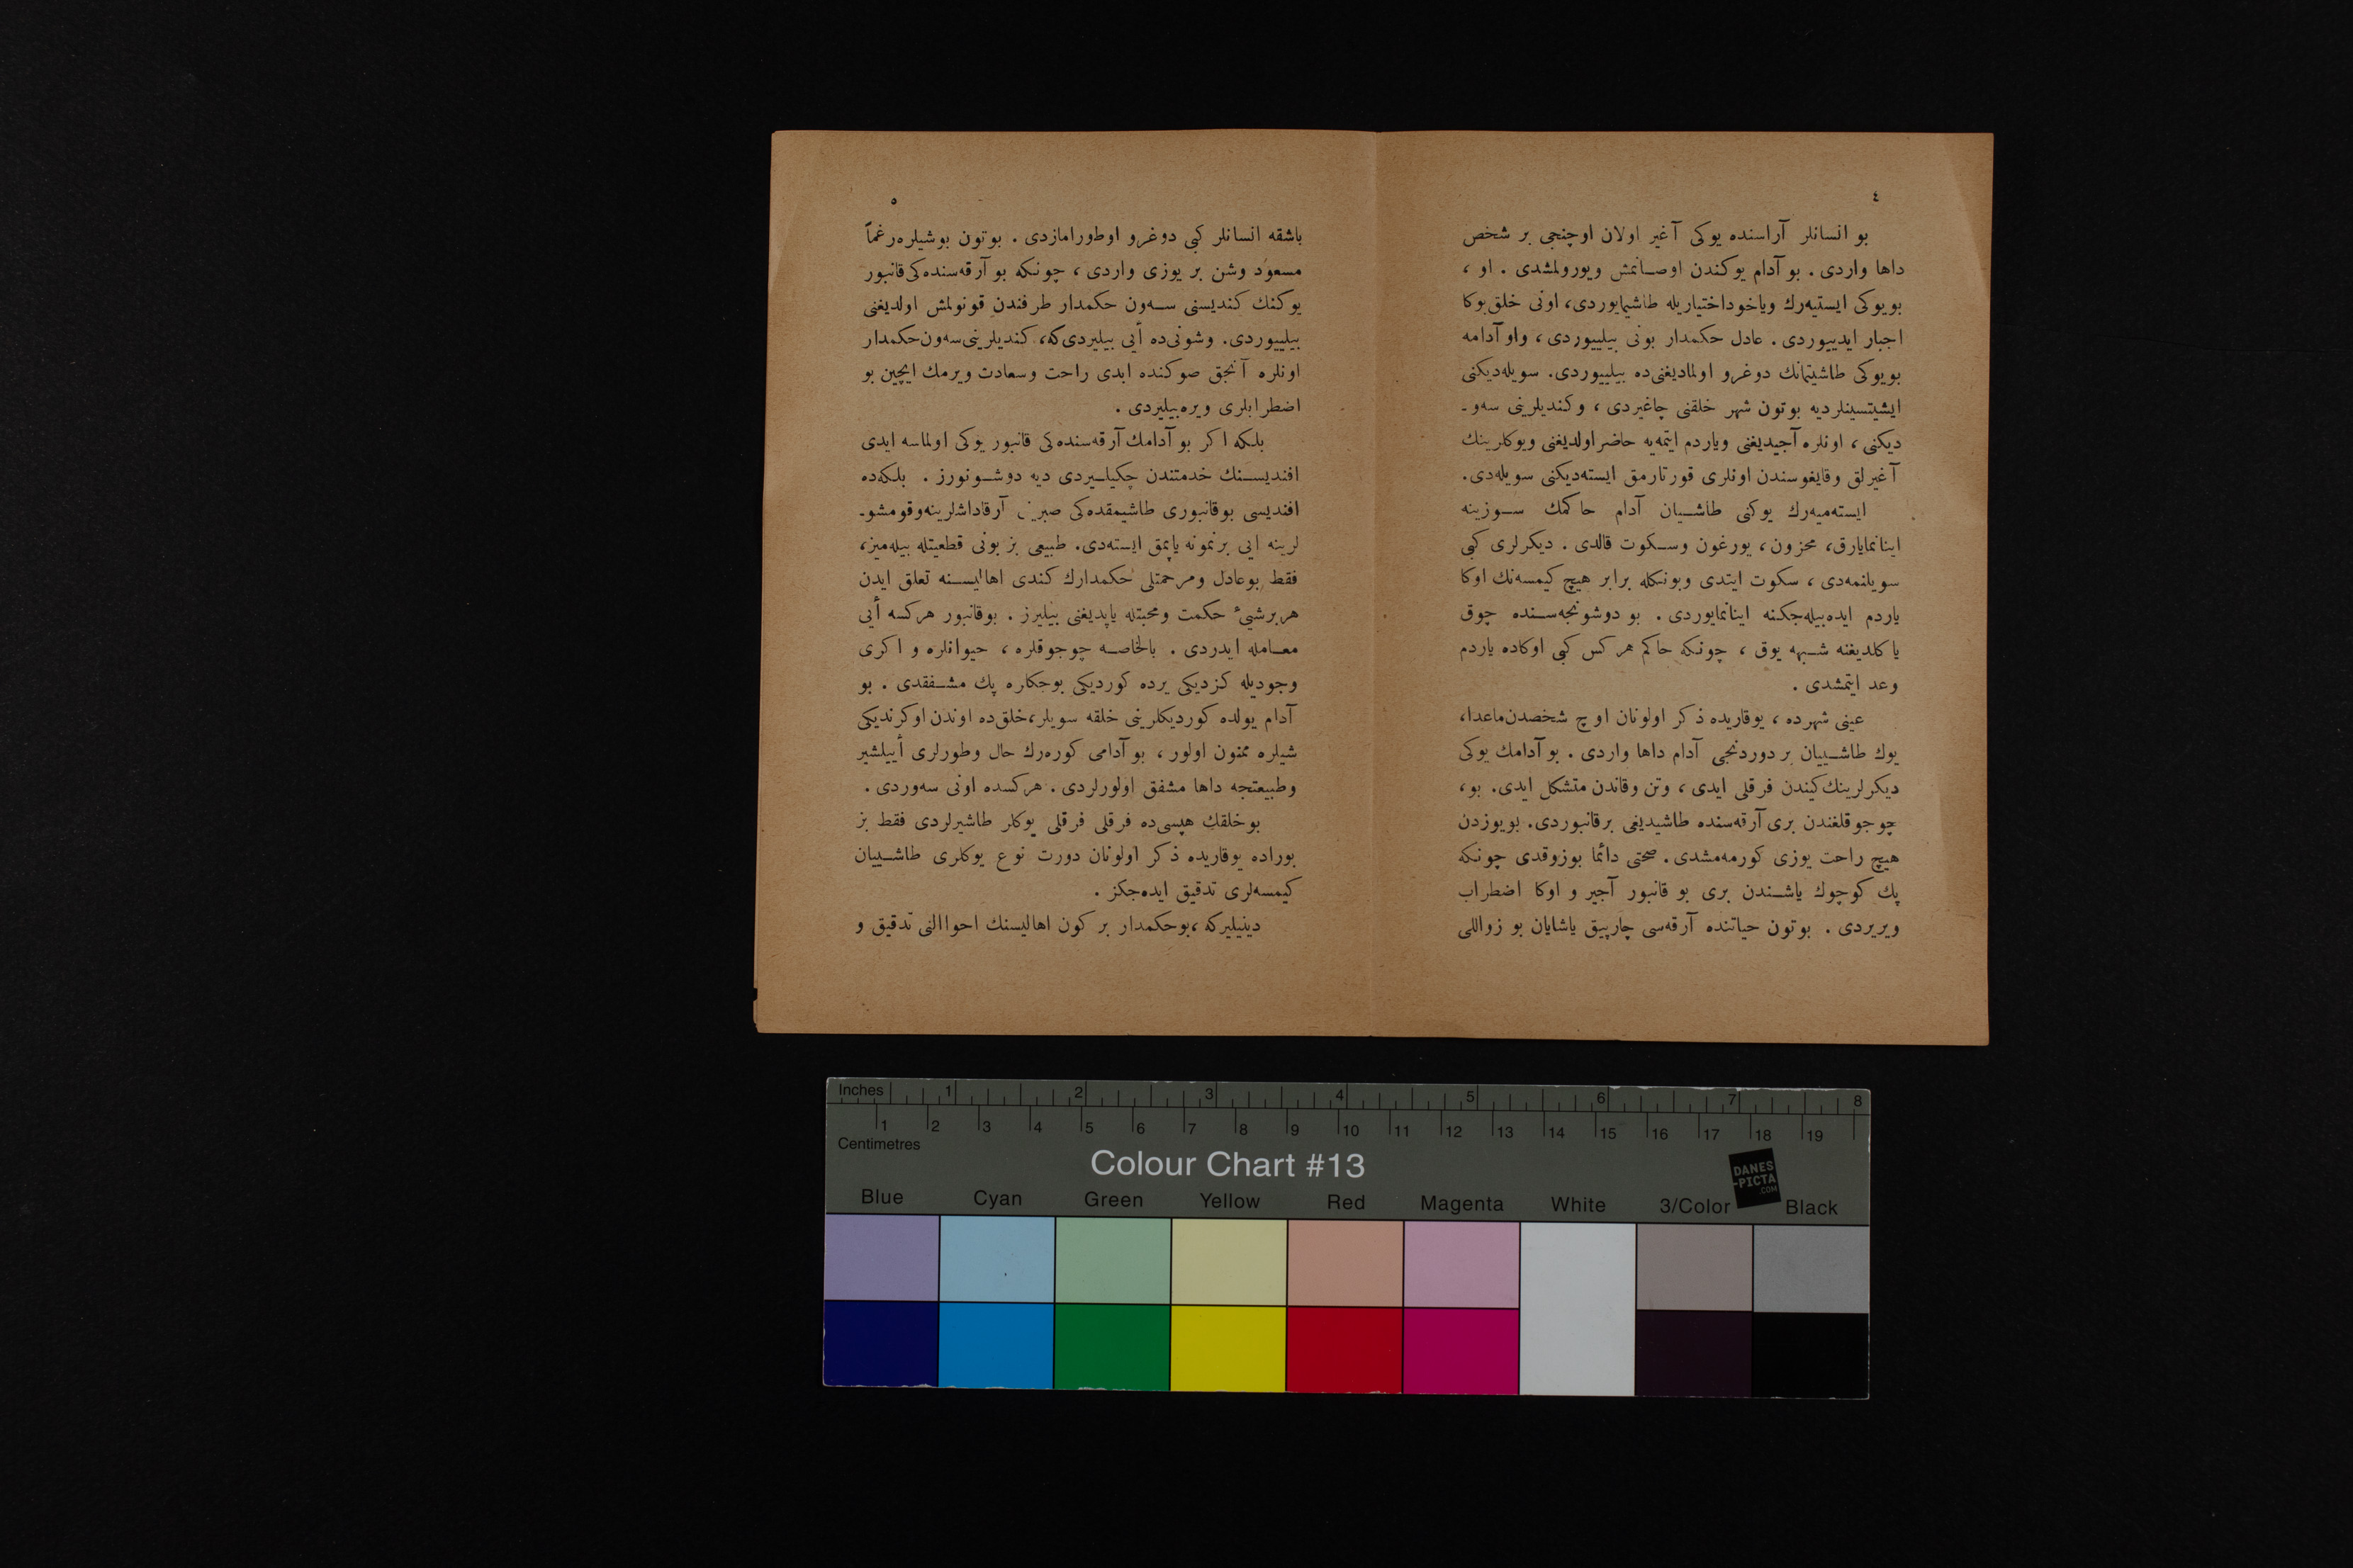 ٤
بو انسانلر آراسنده یوکی آغیر اولان اوچنجی بر شخص
داها واردی . بو آدام یوکندن اوصانمش ویورولمشدی . او ،
بویوکی ایستیه‌رك ویاخود اختیاریله طاشیمایوردی، اونی خلق بوکا
اجبار ایدییوردی . عادل حکمدار بونی بیلییوردی ، واو آدامه
بویوکی طاشیتمانك دوغرو اولمادیغنی‌ده بیلییوردی. سویله‌دیکنی
ایشیتسینلر دیه بوتون شهر خلقنی چاغیردی ، وکندیلرینی سه‌و ـ
دیکنی ، اونلره آجیدیغنی ویاردم ایتمه‌یه حاضر اولدیغنی ویوکلرینك
آغیرلق وقایغوسندن اونلری قورتارمق ایسته‌دیکنی سویله‌دی.
ایسته‌میه‌رك یوکنی طاشیان آدام حاکمك سوزینه
اینانمایارق، محزون، یورغون وسکوت قالدی . دیکرلری کبی
سویلنمه‌دی ، سکوت ایتدی وبونکله برابر هیچ کیمسه‌نك اوکا
یاردم ایده‌بیله‌جکنه اینانمایوردی . بو دوشونجه‌سنده چوق
یاکلدیغنه شبهه یوق ، چونکه حاکم هرکس کبی اوکاده یاردم
وعد ایتمشدی .
عینی شهرده ، یوقاریده ذکر اولونان اوچ شخصدن‌ماعدا،
یوك طاشییان بر دوردنجی آدام داها واردی . بو آدامك یوکی
دیکرلرینك‌کیندن فرقلی ایدی ، وتن وقاندن متشکل ایدی. بو،
چوجوقلغندن بری آرقه‌سنده طاشیدیغی برقانبوردی. بویوزدن
هیچ راحت یوزی کورمه‌مشدی. صحتی دائما بوزوقدی چونکه
پك کوچوك یاشندن بری بو قانبور آجیر و اوکا اضطراب
ویریردی . بوتون حیاتنده آرقه‌سی چارپیق یاشایان بو زواللی
٥
باشقه انسانلر کبی دوغرو اوطورامازدی . بوتون بوشیلره‌رغماً
مسعود وشن بر یوزی واردی ، چونکه بو آرقه‌سنده‌کی قانبور
یوکنك کندیسنی سه‌ون حکمدار طرفندن قونولمش اولدیغنی
بیلییوردی. وشونی‌ده أیی بیلیردی‌که، کندیلرینی‌سه‌ون‌حکمدار
اونلره آنجق صوکنده ابدی راحت وسعادت ویرمك ایچین بو
اضطرابلری ویره‌بیلیردی .
بلکه اکر بو آدامك آرقه‌سنده‌کی قانبور یوکی اولماسه ایدی
افندیسنك خدمتندن چکیلیردی دیه دوشونورز . بلکه‌ده
افندیسی بوقانبوری طاشیمقده‌کی صبرینی آرقاداشلرینه‌وقومشو۔
لرینه ایی برنمونه یاپمق ایسته‌دی. طبیعی بز بونی قطعیتله بیله‌میز،
فقط بوعادل ومرحمتلی حکمدارك کندی اهالیسنه تعلق ایدن
هربرشیئ حکمت ومحبتله یاپدیغنی بیلیرز . بوقانبور هرکسه أیی
معامله ایدردی . بالخاصه چوجوقلره ، حیوانلره و اکری
وجودیله کزدیکی یرده کوردیکی بوجکلره پك مشفقدی . بو
آدام یولده کوردیکلرینی خلقه سویلر،خلق‌ده اوندن اوکرندیکی
شیلره ممنون اولور ، بو آدامی کوره‌رك حال وطورلری أییلشیر
وطبیعتجه داها مشفق اولورلردی. هرکسده اونی سه‌وردی .
بوخلقك هپسی‌ده فرقلی فرقلی یوکلر طاشیرلردی فقط بز
بوراده یوقاریده ذکر اولونان دورت نوع یوکلری طاشییان
کیمسه‌لری تدقیق ایده‌جکز .
دینیلیرکه ،بوحکمدار بر کون اهالیسنك احوالنی تدقیق و
Inches 1 2 3 4 5 6 7 8
1 2 3 4 5 6 7 8 9 10 11 12 13 14 15 16 17 18 19
Centimetres
Colour Chart #13
DANES
-PICTA
.COM
Blue Cyan Green Yellow Red Magenta White 3/Color Black